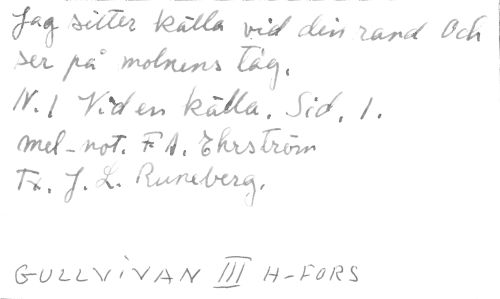 Jag sitter källa vid din rand Och
ser på molnens tåg.
N. 1 Vid en källa. Sid. 1.
mel-not. F A. Ehrström
Tx. J. L. Runeberg.
GULLVIVAN III H-FORS